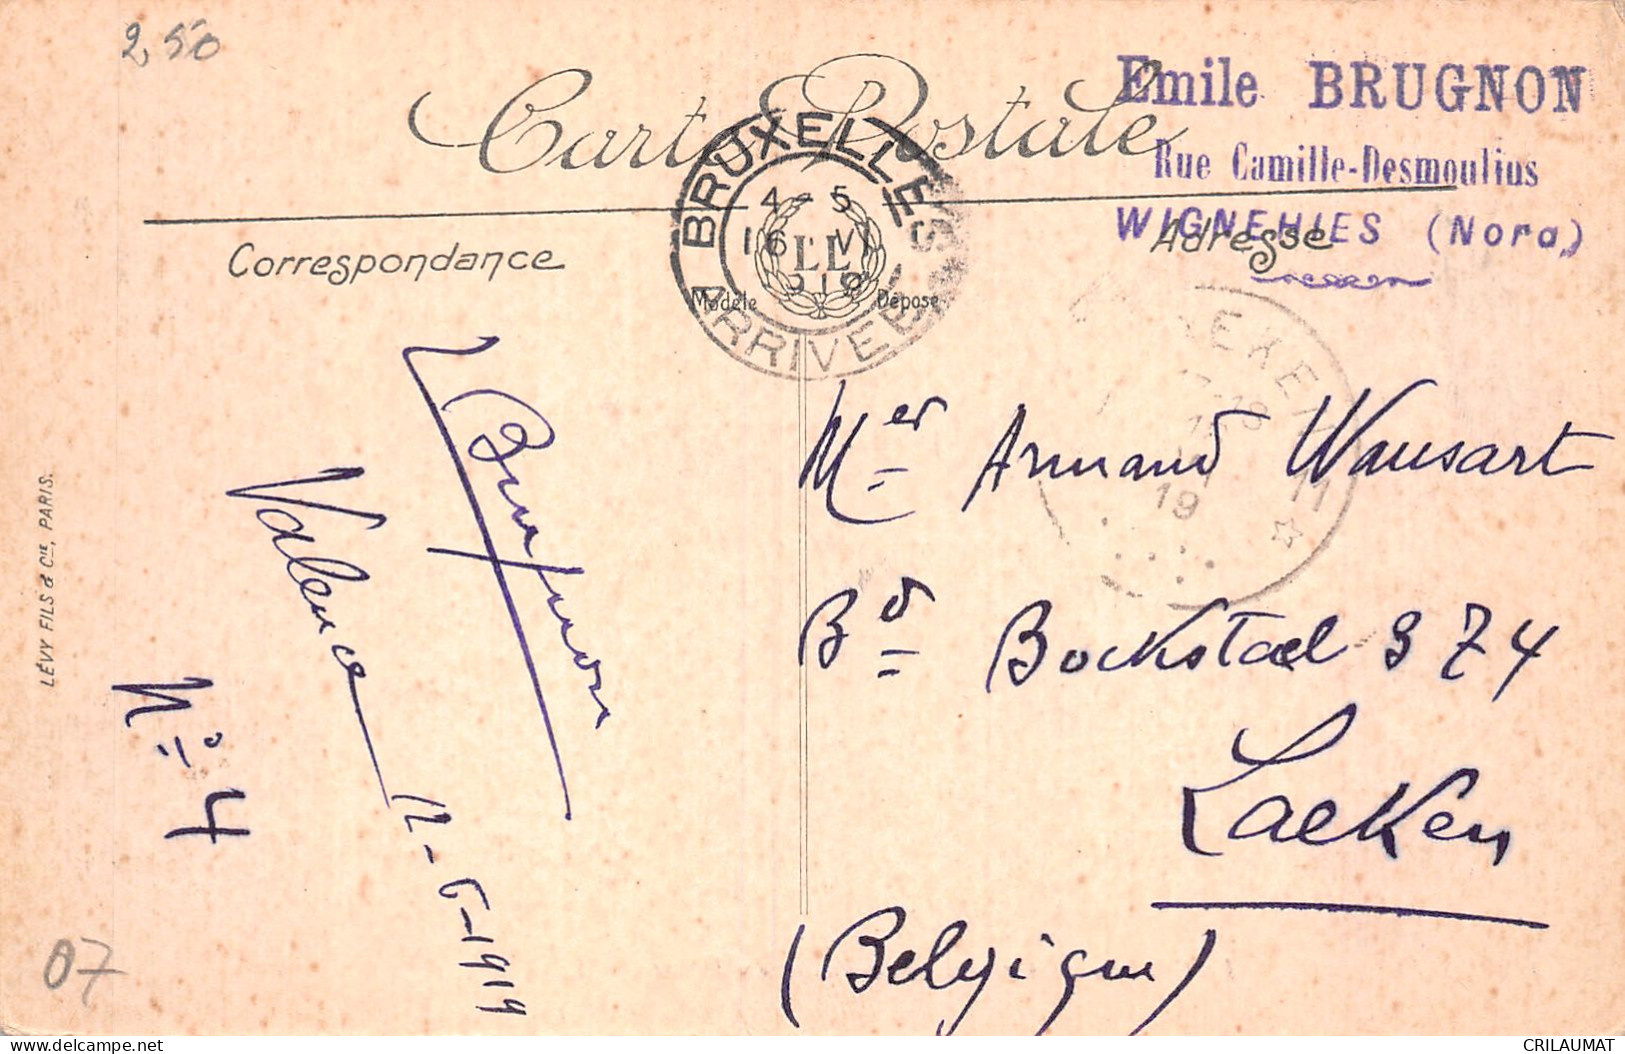 2,50
Carte Postale
Emile BRUGNON
Rue Camille-Desmoulins
WIGNEHIES (Nord)
Correspondance
Adresse
BRUXELLES
4 - 5
16 VI
1919
ARRIVEE
LL
Modèle Déposé
19
11
Brugnon
Valence 12-6-1919
N° 4
Mer Armand Wansart
Bd Bockstael 374
Laeken
(Belgique)
LÉVY FILS & CIE, PARIS.
07
CRILAUMAT